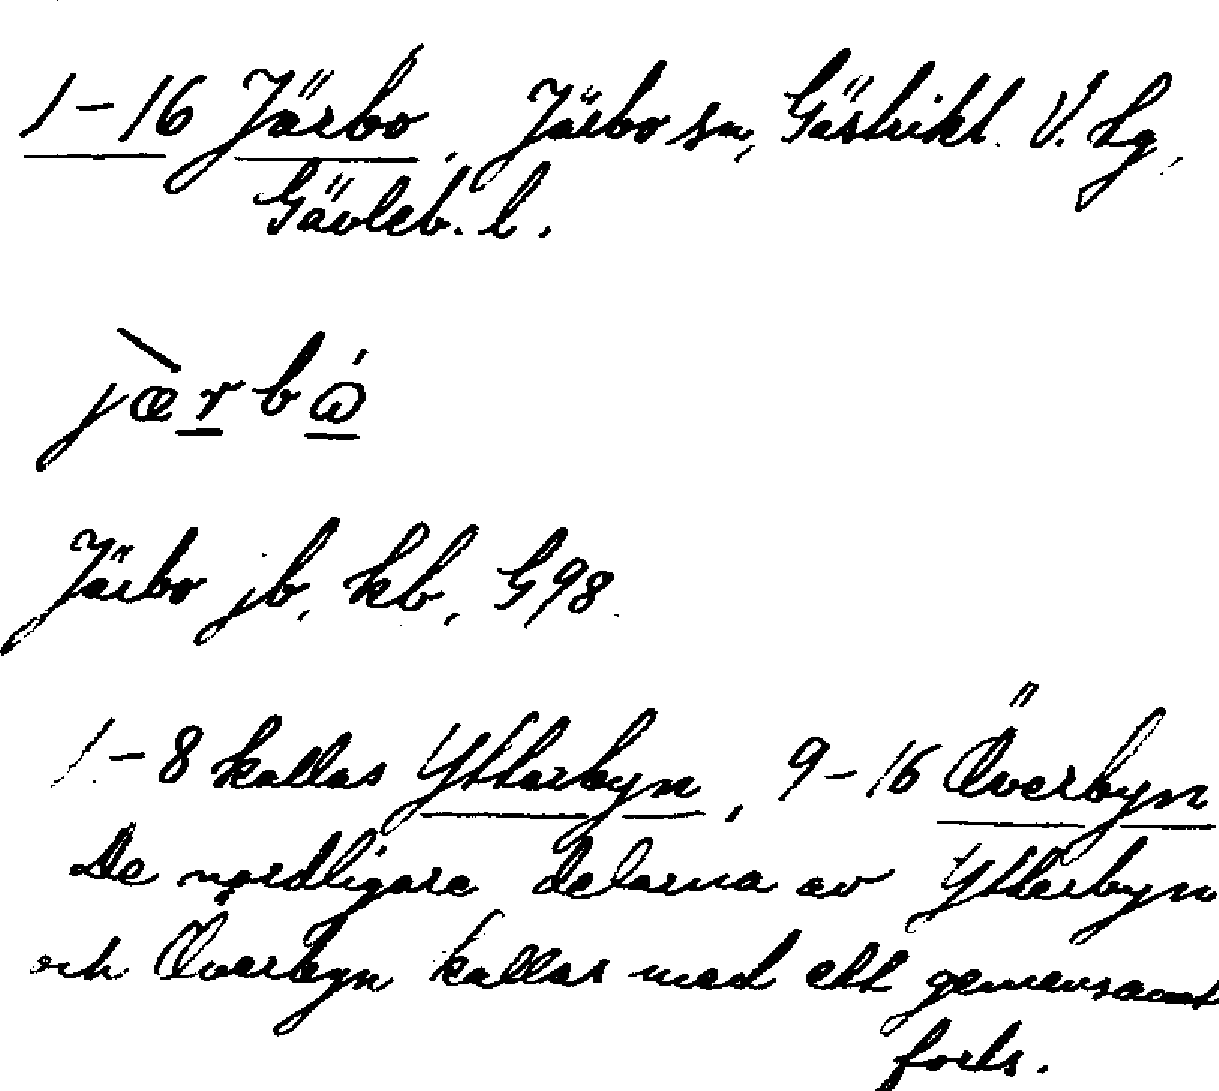 1–16 Järbo, Järbo sn, Gästrikl. V. tg,
Gävleb. l.
jæ̀rbɷ́
Järbo jb, kb, G98.
1–8 kallas Ytterbyn, 9–16 Överbyn
De nordligare delarna av Ytterbyn
och Överbyn kallas med ett gemensamt
forts.